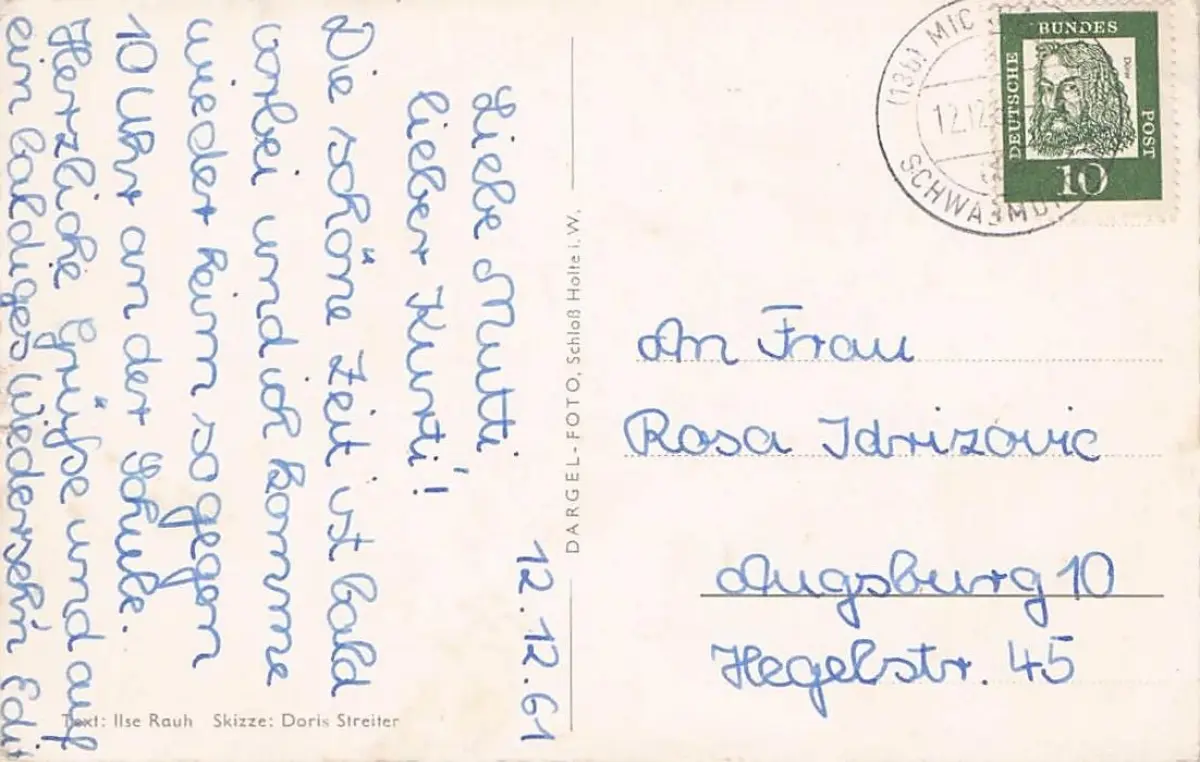 12.12.61
Liebe Mutti
lieber Kurti!
Die schöne Zeit ist bald
vorbei und ich komme
wieder heim so gegen
10 Uhr an der Schule.
Herzliche Grüße und auf
ein baldiges Wiedersehn
Text: Ilse Rauh Skizze: Doris Streiter
DARGEL-FOTO, Schloß Holte i.W.
DEUTSCHE
BUNDES
POST
Dürer
10
(13b) MIC
12.12.
An Frau
Rosa Idrizovic
Augsburg 10
Hegelstr. 45